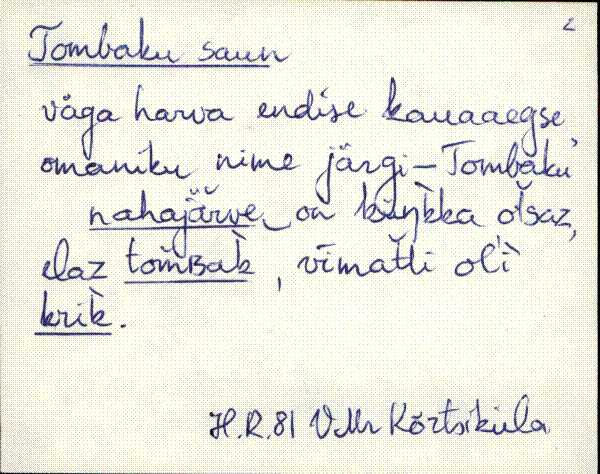 2
Tombaku saun
väga harva endise kauaaegse
omaniku nime järgi – Tombaku
nahajärve on otsaz,
elaz tomʙak̀, vīmat̆ti oĺì
krik̀.
H.R.81 VMr Kõrtsiküla